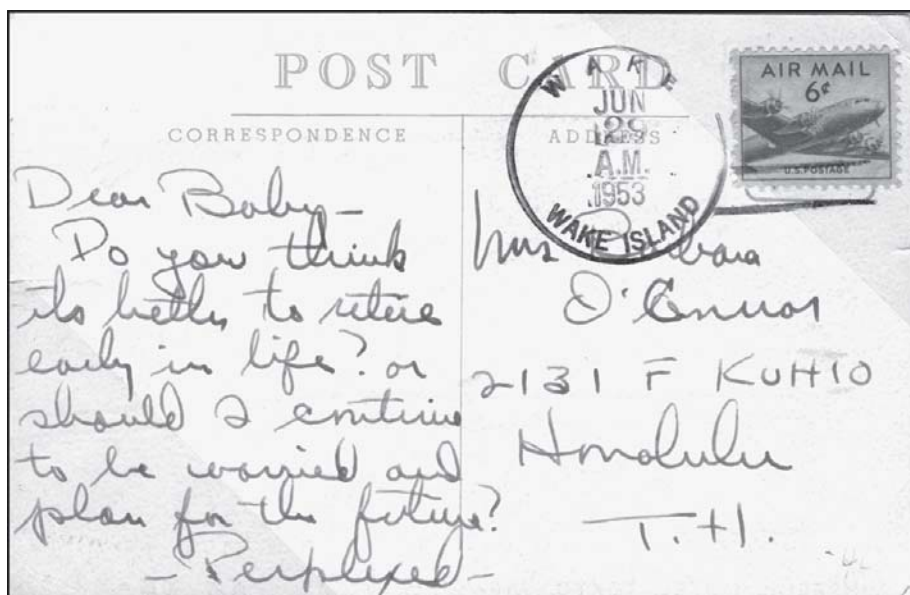 POST CARD
CORRESPONDENCE
ADDRESS
WAKE
JUN
29
A.M.
1953
WAKE ISLAND
AIR MAIL
6¢
U.S. POSTAGE
Dear Baby –
Do you think
its better to retire
early in life? or
should I continue
to be worried and
plan for the future?
– Perplexed –
Mrs Barbara
O'Connor
2131 F KUHIO
Honolulu
T.H.